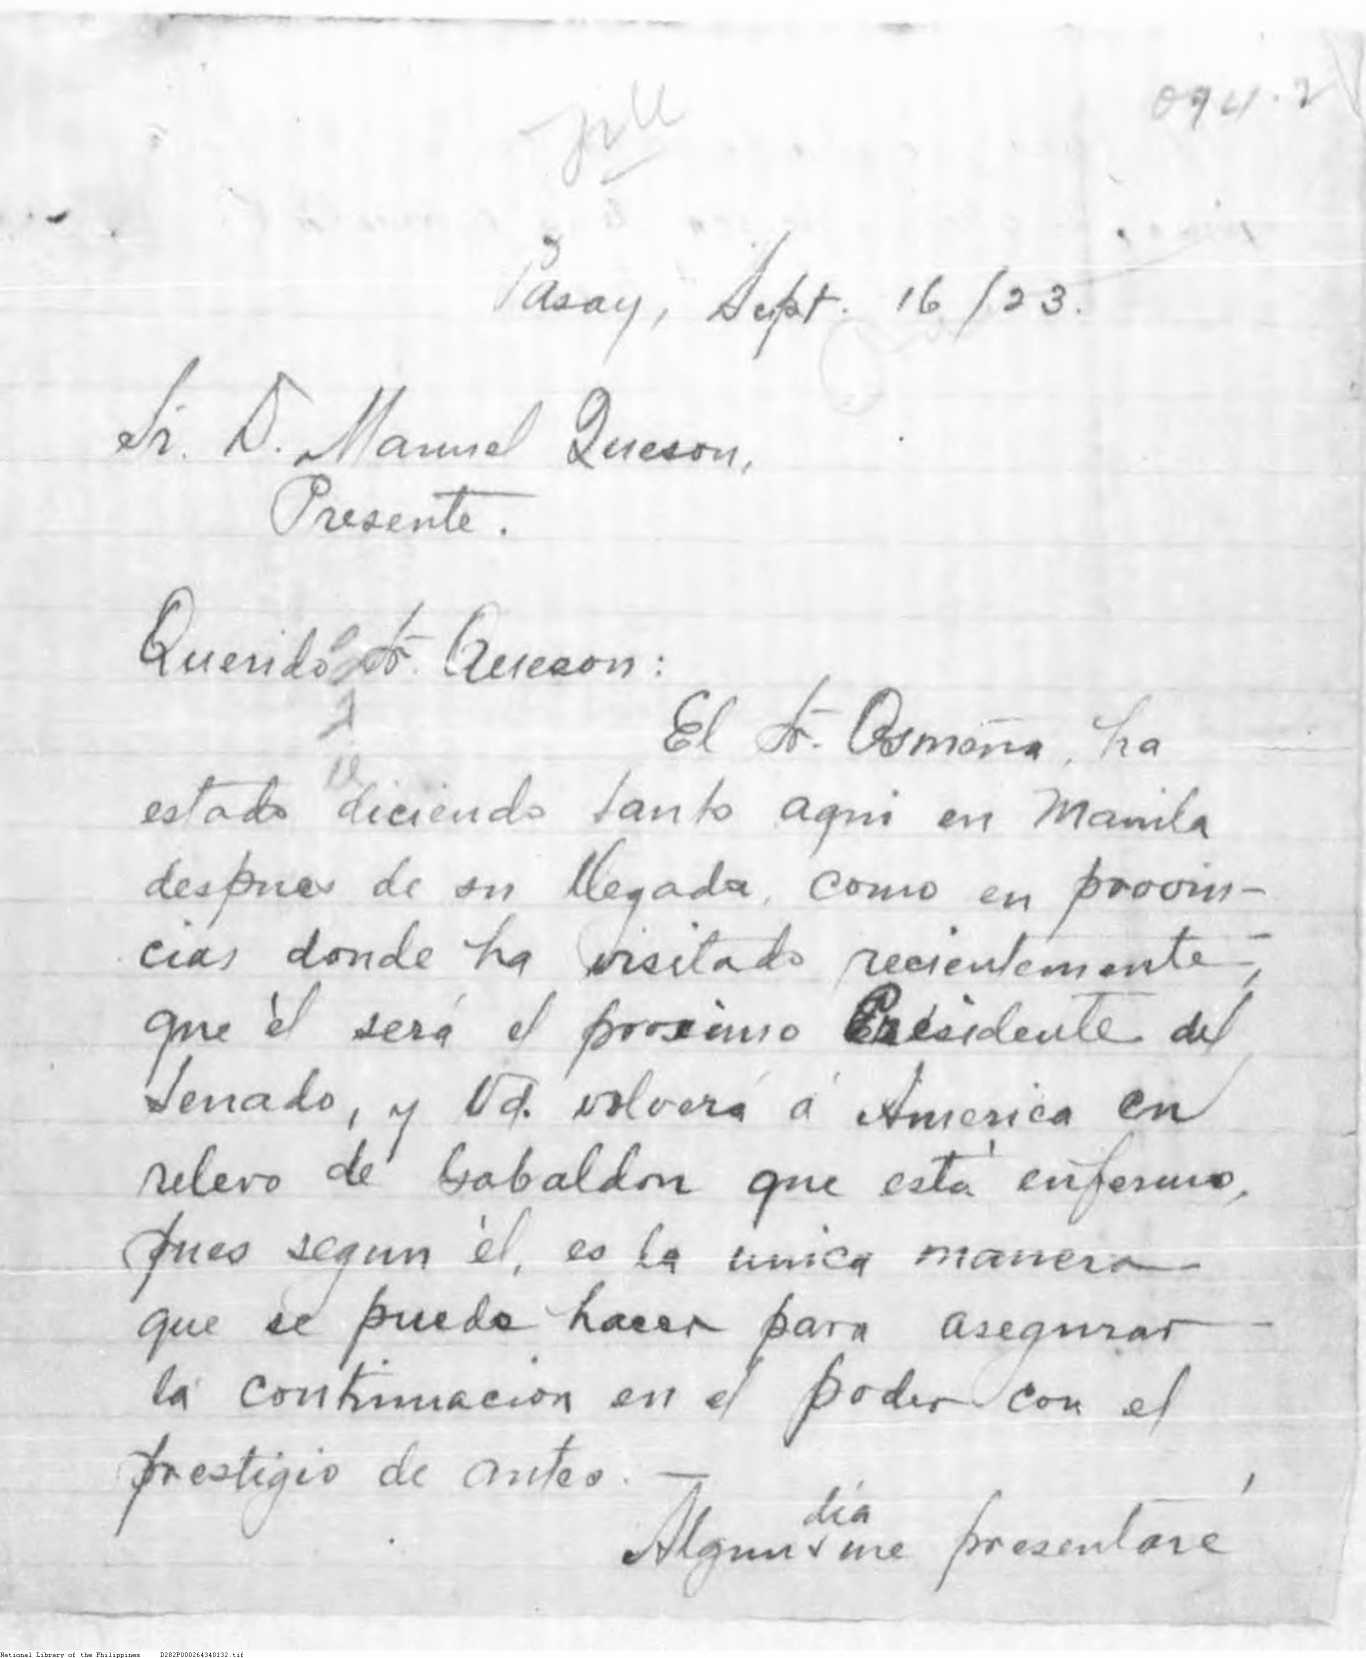 094.2
Pasay, Sept. 16/23.
Sr. D. Manuel Queson,
Presente.
Querido Sr. Queson:
El Sr. Osmeña, ha
estado diciendo tanto aqui en Manila
despues de su llegada, como en provin-
cias donde ha visitado recientemente,
que él será el proximo Presidente del
Senado, y Vd. volverá á America en
relevo de Gabaldon que está enfermo,
pues segun él, es la unica manera
que se puede hacer para asegurar
la continuacion en el poder con el
prestigio de antes. —
Algun día me presentaré
National Library of the Philippines D282P000264340132.tif